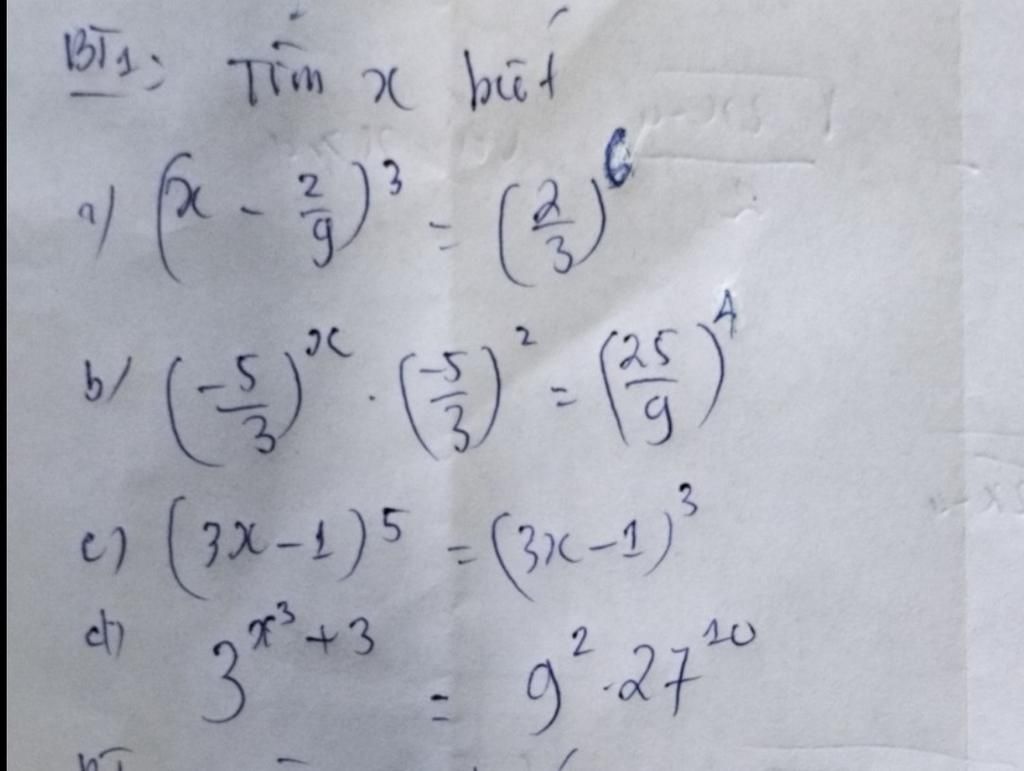 BT1: Tìm x biết
a) (x - 2/9)³ = (2/3)⁶
b/ (-5/3)ˣ . (-5/3)² = (25/9)⁴
c) (3x-1)5 = (3x-1)³
d) 3^(x³+3) = 9² . 27¹⁰